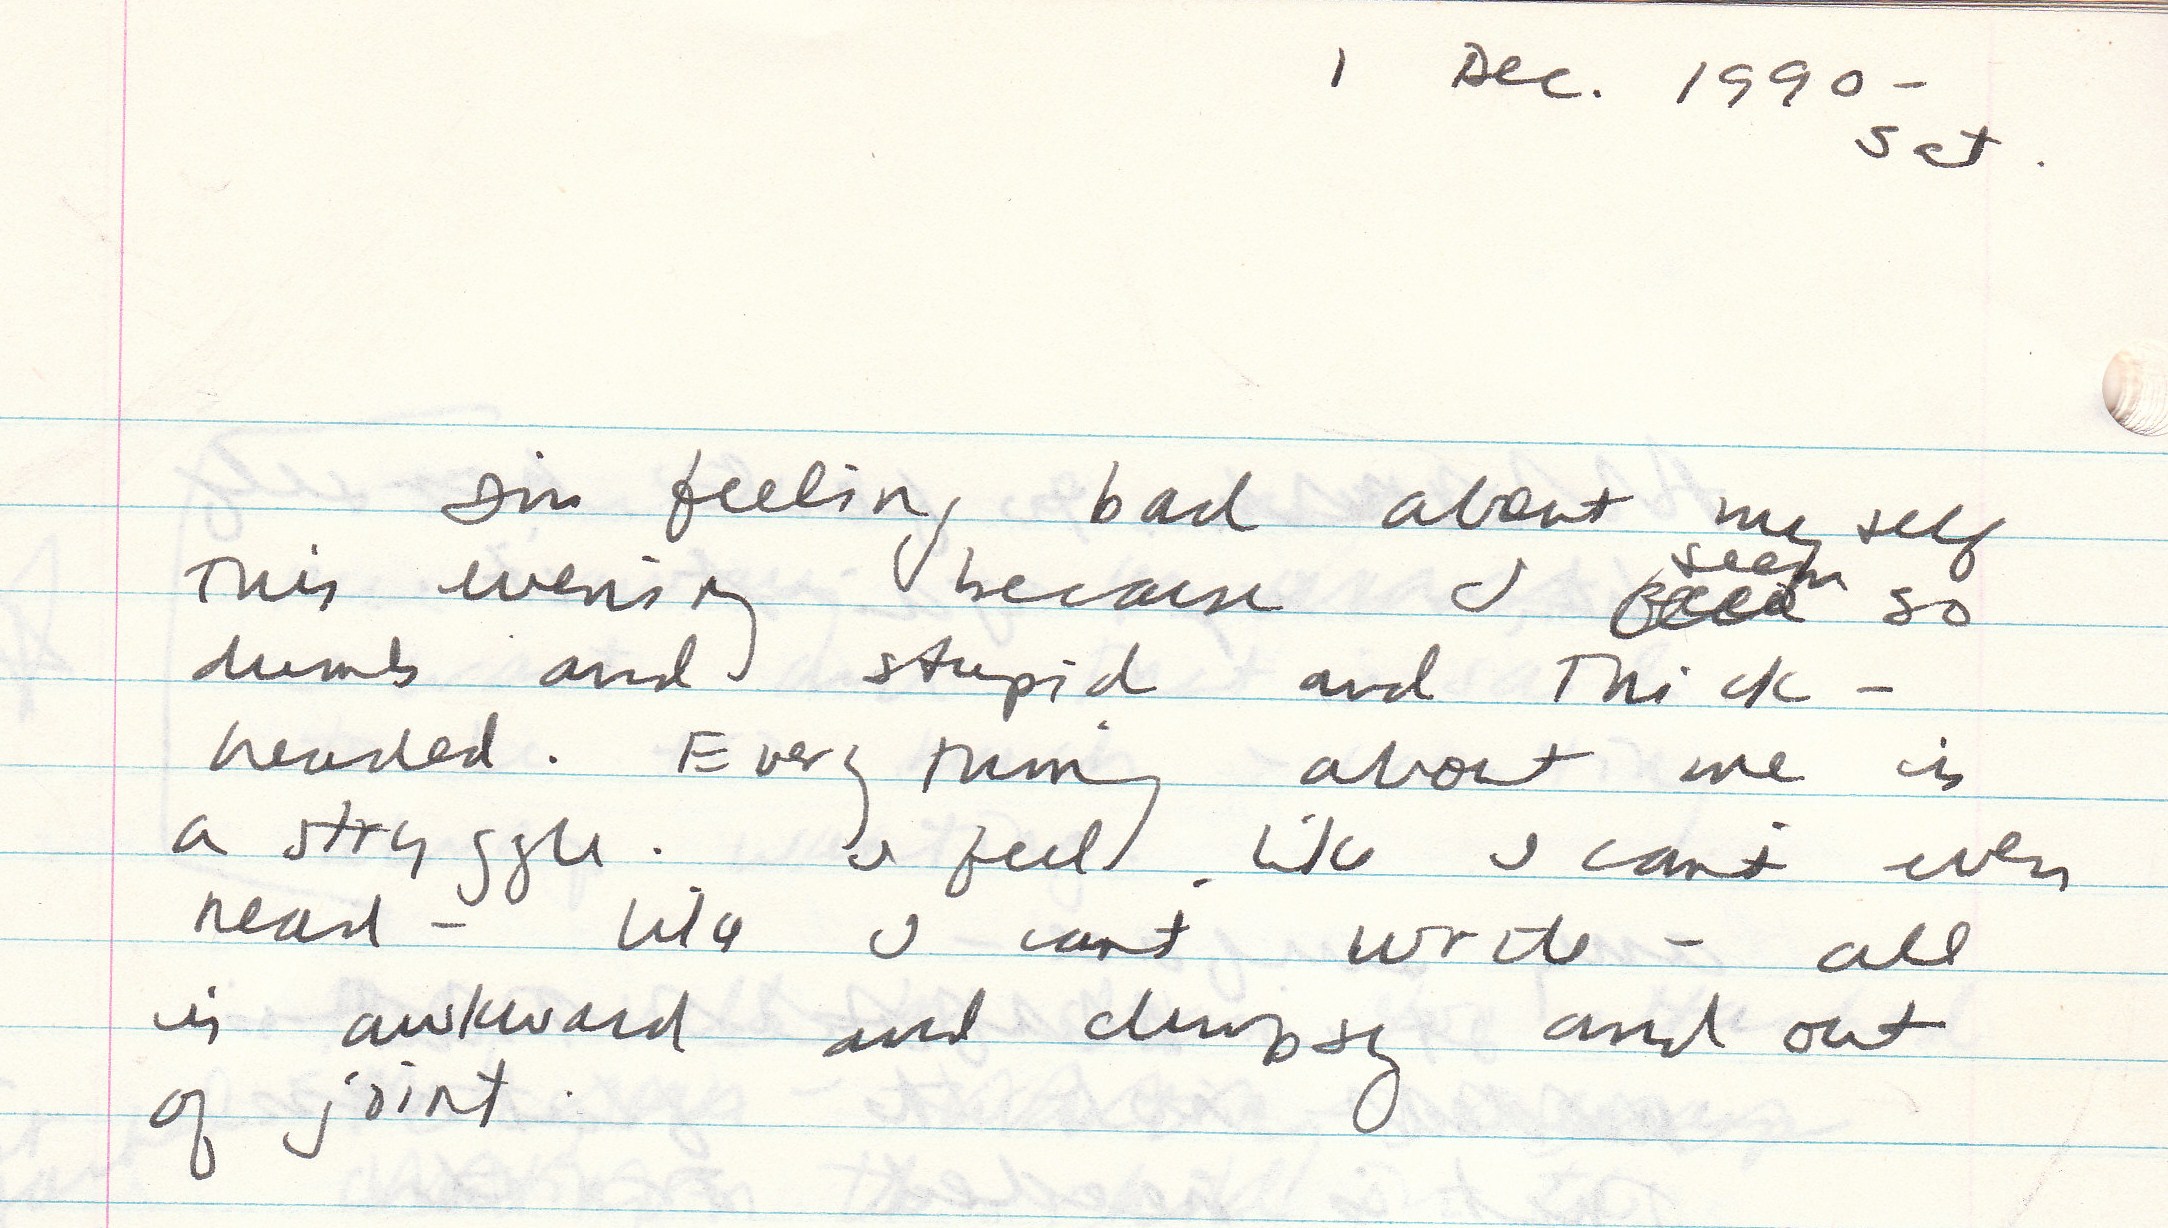 1 Dec. 1990 -
Sat.
I'm feeling bad about myself
this evening because I seem so
dumb and stupid and thick-
headed. Everything about me is
a struggle. I feel like I can't even
read - like I can't write - all
is awkward and clumpsy and out
of joint.